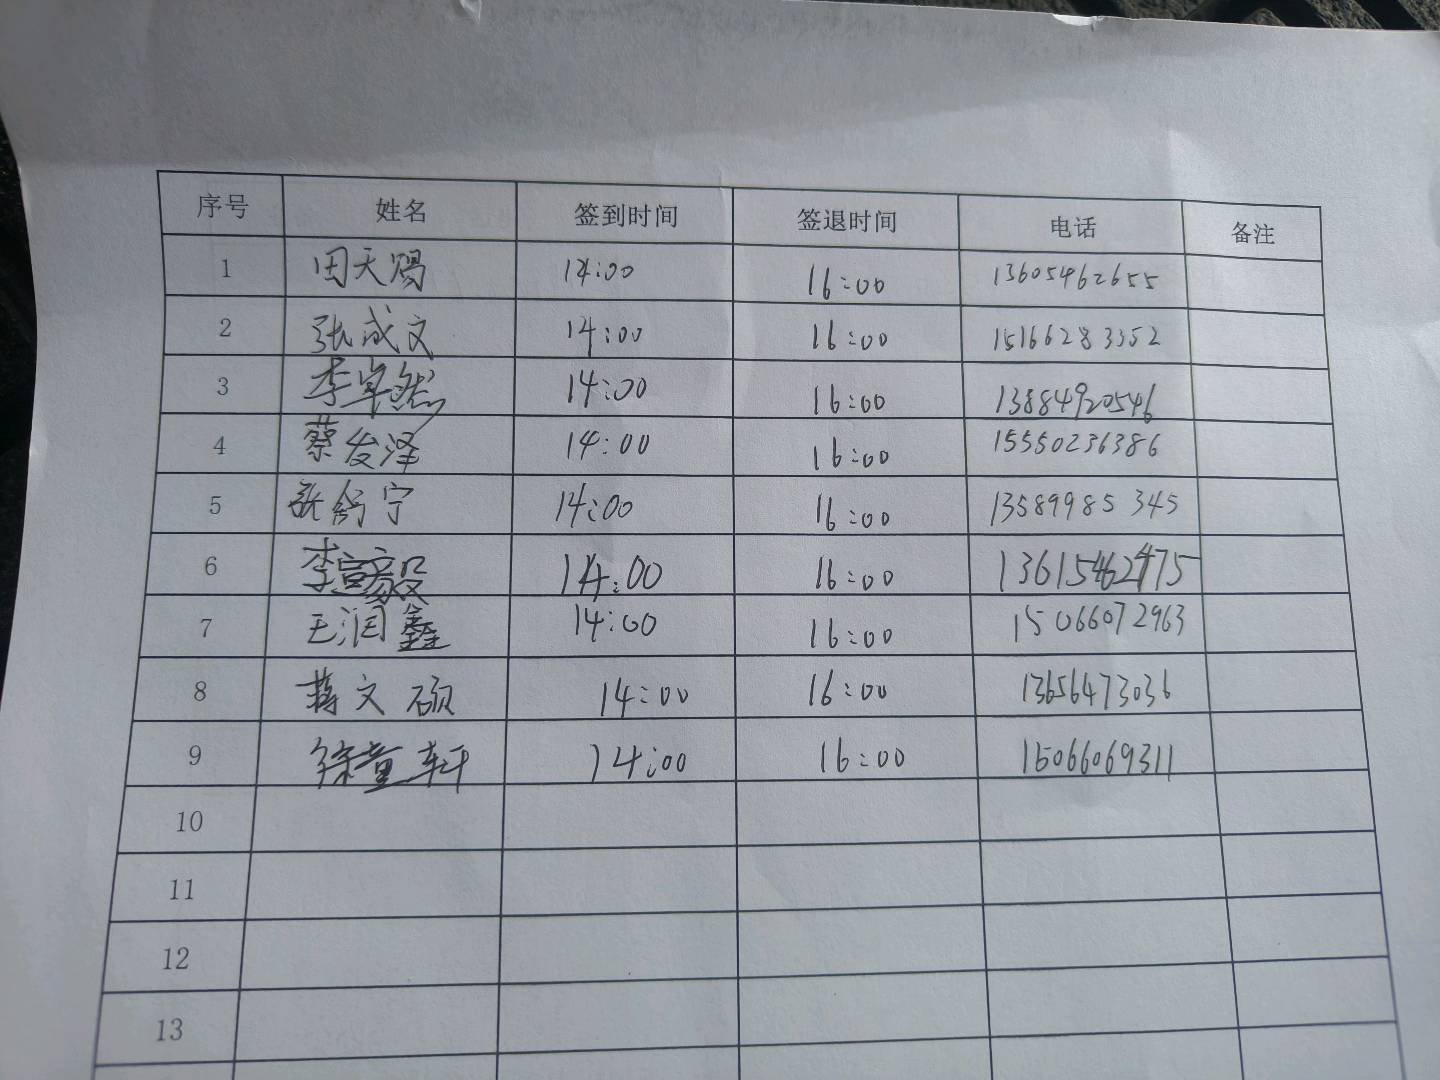 序号 姓名 签到时间 签退时间 电话 备注
1 田天赐 14:00 16:00 13605462655
2 张成文 14:00 16:00 15166283352
3 李卓然 14:00 16:00 13884920546
4 蔡俊泽 14:00 16:00 15550236386
5 张舒宁 14:00 16:00 13589985345
6 李宣毅 14:00 16:00 13615462475
7 王润鑫 14:00 16:00 15066072963
8 蒋文硕 14:00 16:00 13656473036
9 徐童轩 14:00 16:00 15066069311
10
11
12
13